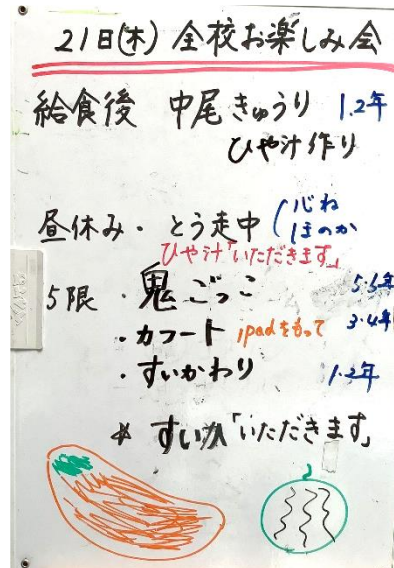 21日(木) 全校お楽しみ会
給食後 中尾きゅうり 1.2年
ひや汁作り
昼休み・とう走中
ほのか
ひや汁「いただきます」
5限 ・鬼ごっこ 5.6年
・カフート ipadをもって 3.4年
・すいかわり 1.2年
すいか「いただきます」